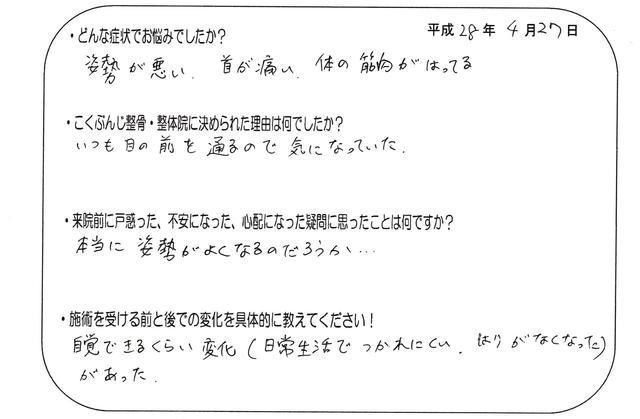 平成28年 4月27日
・どんな症状でお悩みでしたか?
姿勢が悪い、首が痛い、体の筋肉がはってる
・こくぶんじ整骨・整体院に決められた理由は何でしたか?
いつも目の前を通るので気になっていた.
・来院前に戸惑った、不安になった、心配になった疑問に思ったことは何ですか?
本当に姿勢がよくなるのだろうか…
・施術を受ける前と後での変化を具体的に教えてください!
自覚できるくらい変化(日常生活でつかれにくい、はりがなくなった)
があった.